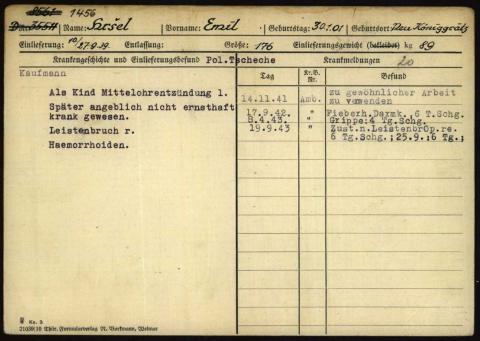 8561 1456
D.Nr. 3554 Name: Hršel Vorname: Emil Geburtstag: 30.7.01 Geburtsort: Neu Königgrätz
Einlieferung: 10/27.9.39. Entlassung: Größe: 176 Einlieferungsgewicht (bekleidet) kg 89
Krankengeschichte und Einlieferungsbefund Pol.Tscheche Krankmeldungen 20
Kaufmann Tag Kr.B. Nr. Befund
Als Kind Mittelohrentzündung l. 14.11.41 Amb. zu gewöhnlicher Arbeit
zu verwenden
Später angeblich nicht ernsthaft 17.9.42. " Fieberh.Darmk.;6 T.Schg.
krank gewesen. 8.4.43. " Grippe:4 Tg.Schg.
Leistenbruch r. 19.9.43 " Zust.n.LeistenbrOp.re.
6 Tg.Schg.;25.9.;6 Tg.;
Haemorrhoiden.
Ko. 3
21039/10 Thür. Formularverlag N. Borkmann, Weimar